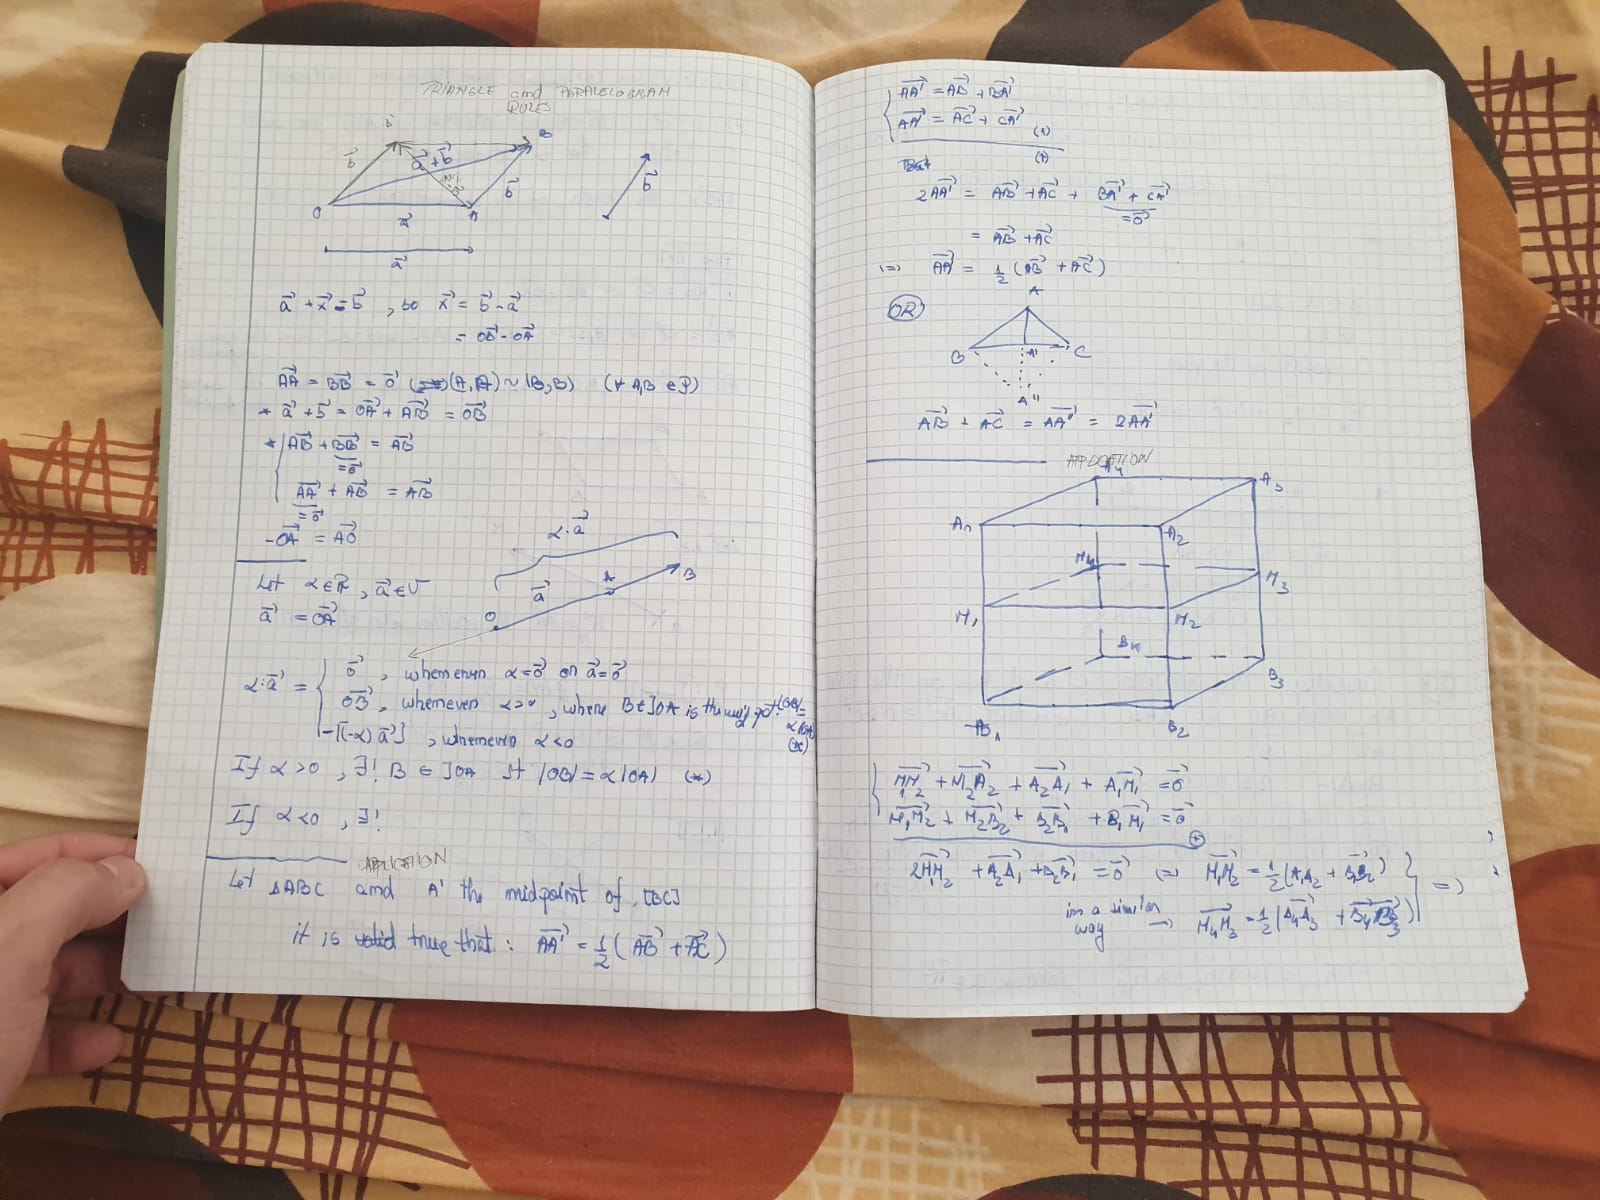 TRIANGLE and PARALELOGRAM
RULES
b⃗
a⃗+b⃗
B
b⃗
b⃗
O
a⃗
A
a⃗
a⃗ + x⃗ = b⃗ , so x⃗ = b⃗ - a⃗
= OB⃗ - OA⃗
AA⃗ = BB⃗ = o⃗ (A, A) ~ (B, B) (∀ A,B ∈ P)
* a⃗ + b⃗ = OA⃗ + AB⃗ = OB⃗
* AB⃗ + BB⃗ = AB⃗
= o⃗
AA⃗ + AB⃗ = AB⃗
= o⃗
-OA⃗ = AO⃗
Let α ∈ R , a⃗ ∈ V
a⃗ = OA⃗
α·a⃗
a⃗
O
A
B
α·a⃗ = { o⃗ , whenever α = o⃗ or a⃗ = o⃗
OB⃗ , whenever α > 0 , where B ∈ ]OA is the
-[(-α) a⃗] , whenever α < 0
(*)
If α > 0 , ∃! B ∈ ]OA st |OB| = α |OA| (*)
If α < 0 , ∃!
APPLICATION
Let ΔABC and A' the midpoint of [BC]
it is valid true that : AA'⃗ = 1/2 ( AB⃗ + AC⃗ )
{ AA'⃗ = AB⃗ + BA'⃗
AA'⃗ = AC⃗ + CA'⃗
(+)
2AA'⃗ = AB⃗ + AC⃗ + BA'⃗ + CA'⃗
= o⃗
= AB⃗ + AC⃗
=> AA'⃗ = 1/2 (AB⃗ + AC⃗)
OR
A
B
A'
C
A"
AB⃗ + AC⃗ = AA"⃗ = 2AA'⃗
APPLICATION
A4
A3
A1
A2
M4
M3
M1
M2
B4
B3
B1
B2
{ M1M2⃗ + M2A2⃗ + A2A1⃗ + A1M1⃗ = o⃗
M1M2⃗ + M2B2⃗ + B2B1⃗ + B1M1⃗ = o⃗
(+)
2M1M2⃗ + A2A1⃗ + B2B1⃗ = o⃗ => M1M2⃗ = 1/2 (A1A2⃗ + B1B2⃗) } =>
in a similar
way → M4M3⃗ = 1/2 (A4A3⃗ + B4B3⃗)